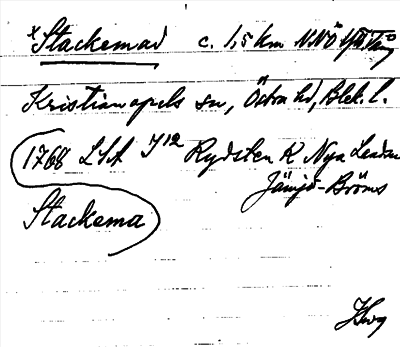 x Stackemad c. 1,5 km NNÖ
Kristianopels sn, Östra hd, Blek. l.
1768 LSA J12 Rydsten K Nya Landsv.
Jämjö-Bröms
Stackema